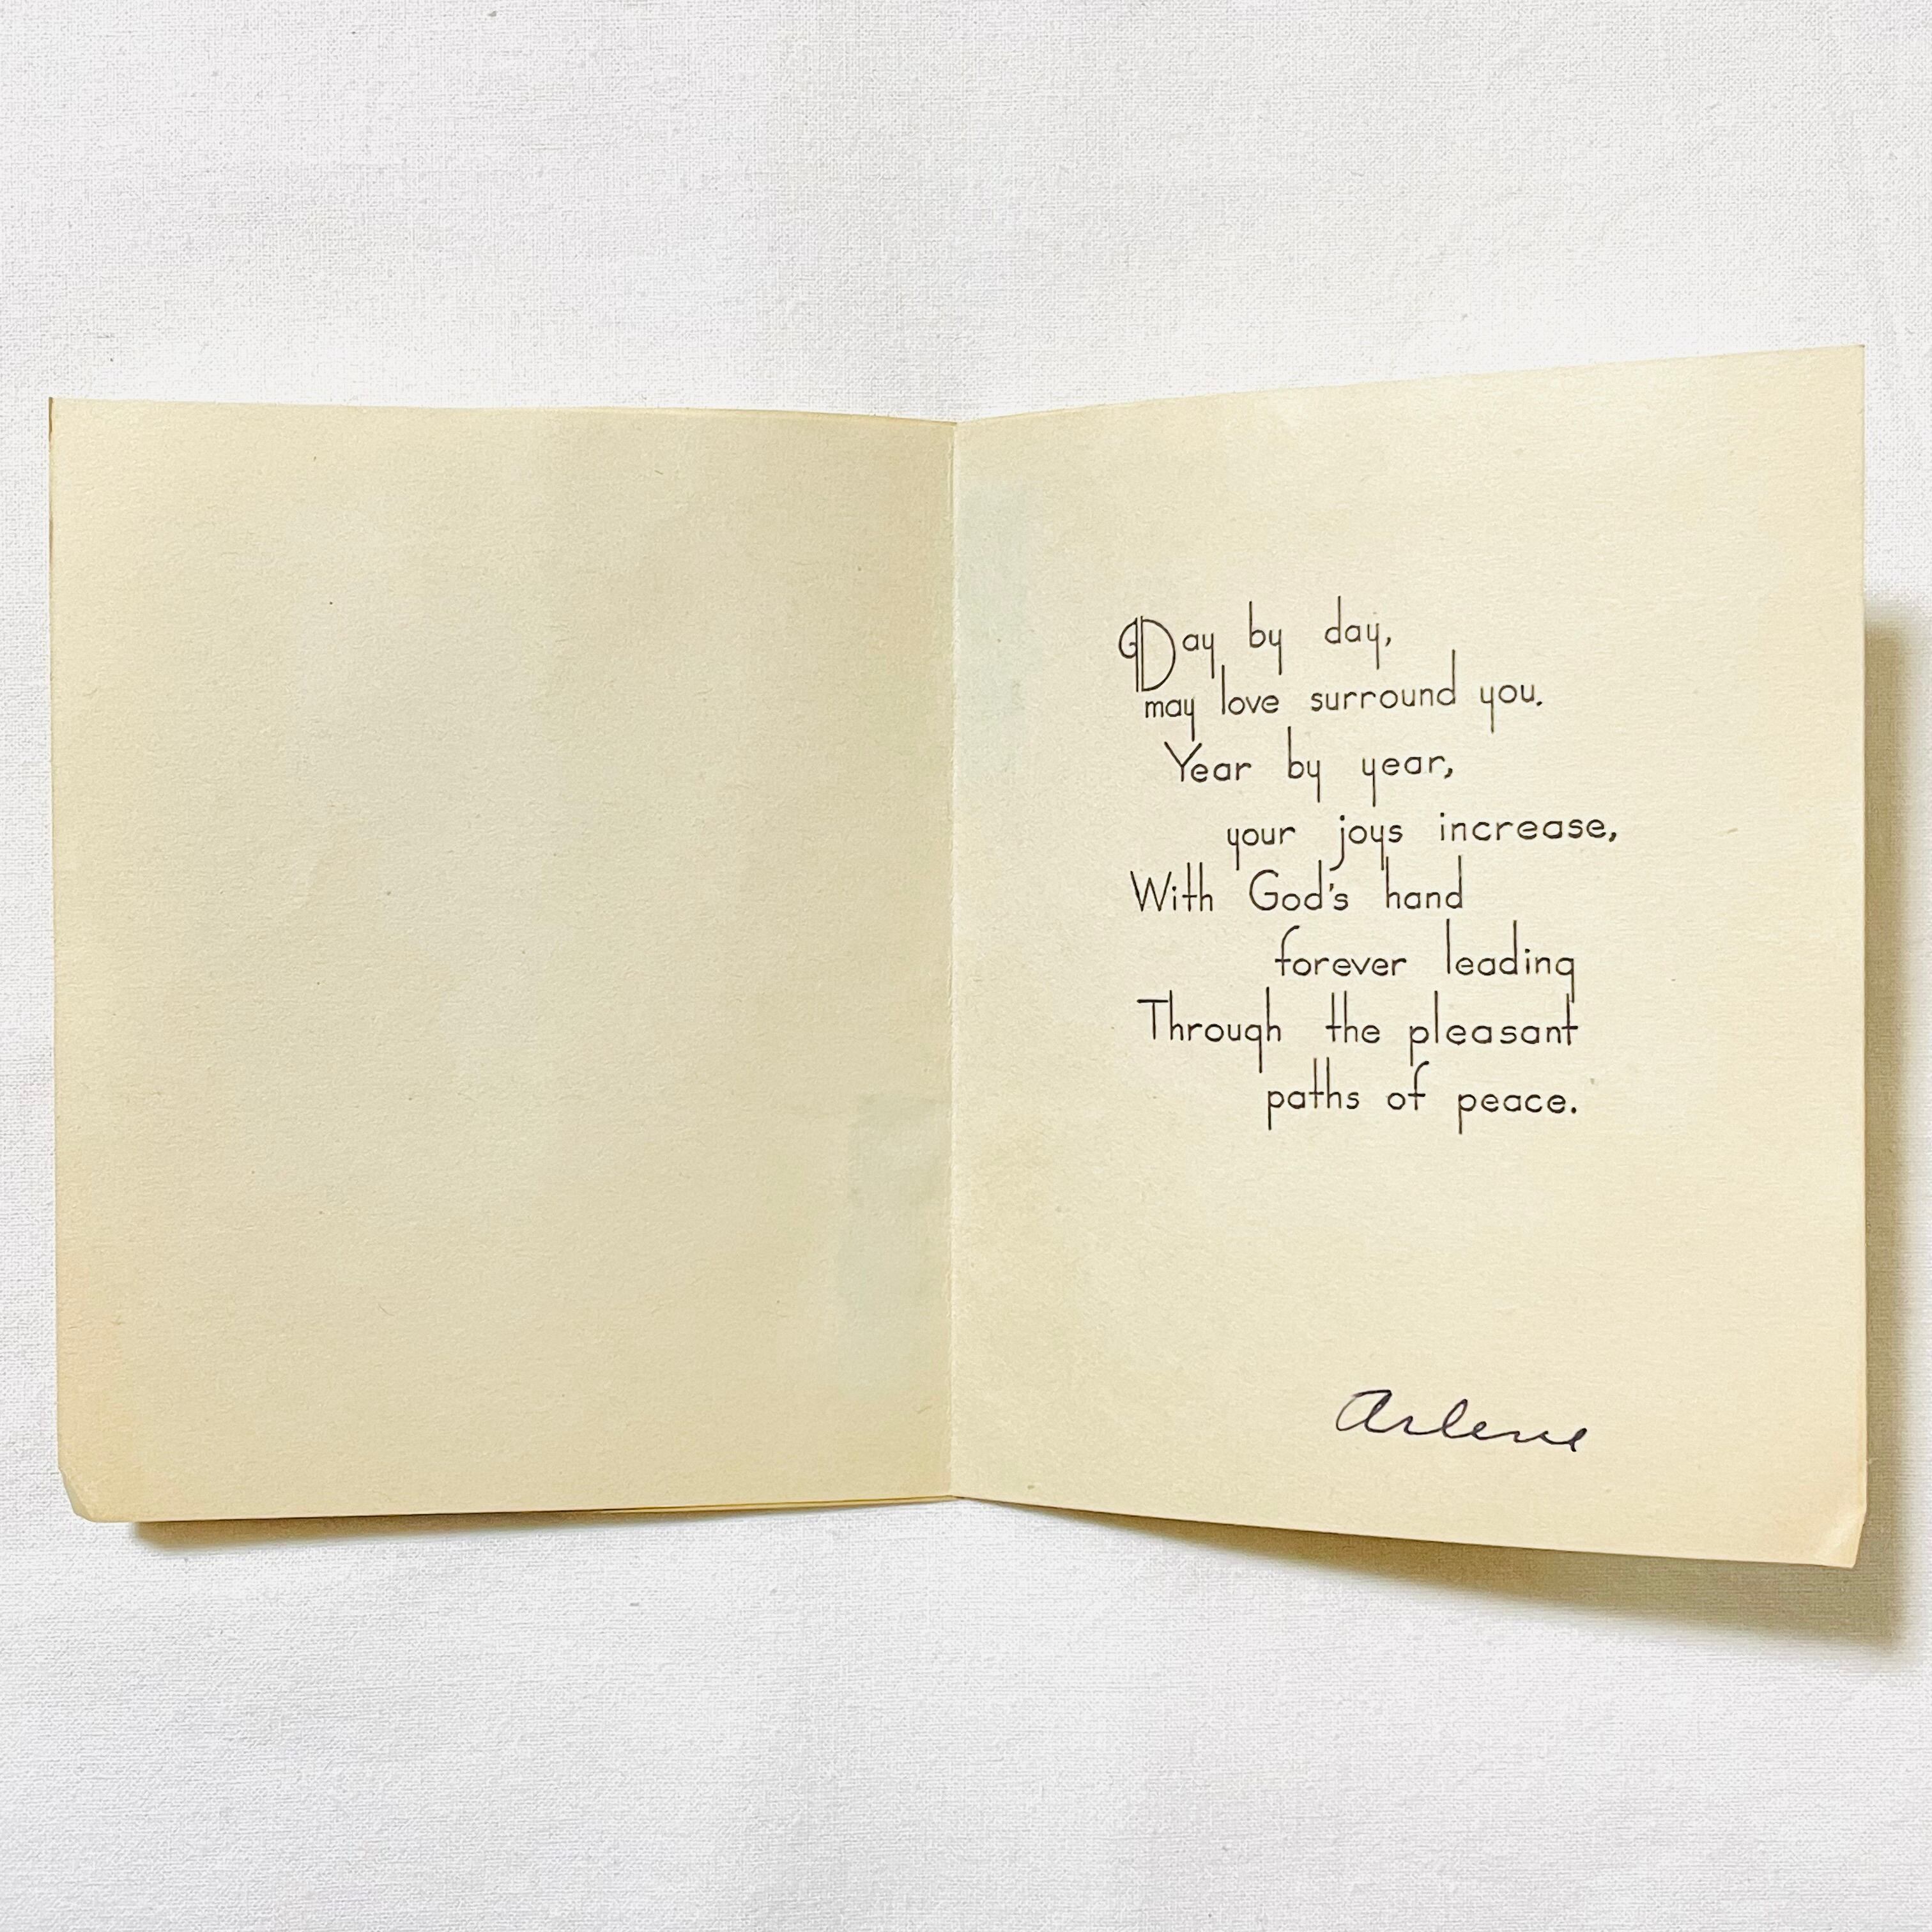 Day by day,
may love surround you.
Year by year,
your joys increase,
With God's hand
forever leading
Through the pleasant
paths of peace.
Arlene